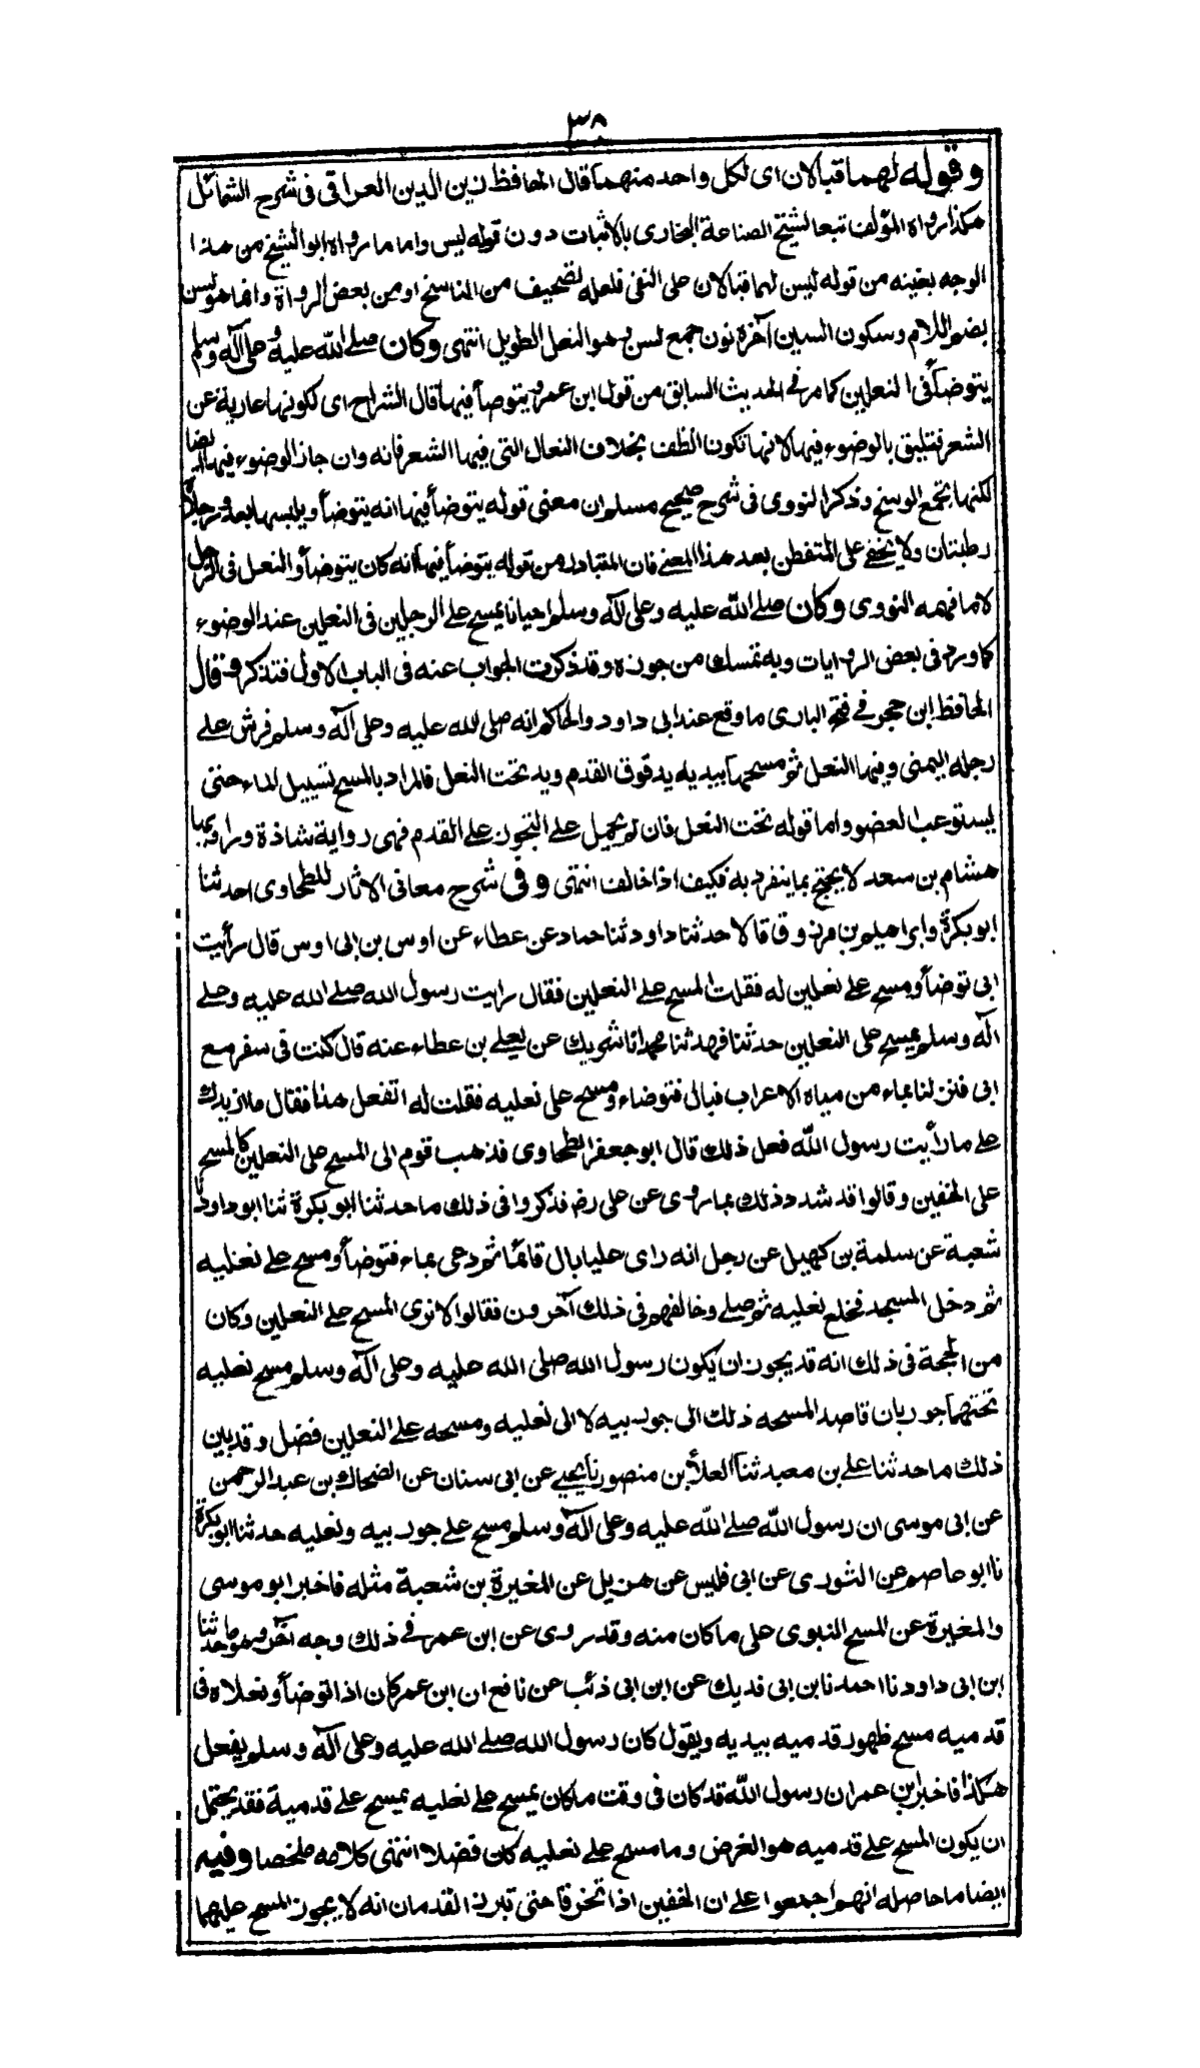 ٣٨
وقوله لهما قبالان اى لكل واحد منهما قال الحافظ زين الدين العراقى فى شرح الشمائل
هكذا رواه المؤلف تبعا لشيخ الصناعة البخارى بالاثبات دون قوله ليس واما ما رواه ابو الشيخ من هذا
الوجه بعينه من قوله ليس لهما قبالان على النفى فلعله تصحيف من الناسخ او من بعض الرواة وانما هو لسن
بضم اللام وسكون السين آخره نون جمع لسن وهو النعل الطويل انتهى وكان صلى الله عليه وعلى آله وسلم
يتوضأ فى النعلين كما مر فى الحديث السابق من قول ابن عمر ويتوضأ فيها قال الشراح اى لكونها عارية عن
الشعر فتليق بالوضوء فيها لانها تكون الظف بخلاف النعال التى فيها الشعر فانه وان جاز الوضوء فيها ايضا
لكنها تجمع الوسخ وذكر النووى فى شرح صحيح مسلم ان معنى قوله يتوضأ فيها انه يتوضأ ويلبسها بعد ورجلاه
رطبتان ولا يخفى على المتفطن بعد هذا المعنى فان المتبادر من قوله يتوضأ فيها انه كان يتوضأ والنعل فى الرجل
لا ما فهمه النووى وكان صلى الله عليه وعلى آله وسلم احيانا يمسح على الرجلين فى النعلين عند الوضوء
كما ورد فى بعض الروايات وبه تمسك من جوزه وقد ذكرت الجواب عنه فى الباب الاول فتذكره وقال
الحافظ ابن حجر فى فتح البارى ما وقع عند ابى داود والحاكم انه صلى الله عليه وعلى آله وسلم فرش على
رجله اليمنى وفيها النعل ثم مسحها بيديه يد فوق القدم ويد تحت النعل فالمراد بالمسح تسييل الماء حتى
يستوعب العضو واما قوله تحت النعل فان لم يحمل على التجوز على القدم فهى رواية شاذة وراويها
هشام بن سعد لا يحتج بما ينفرد به فكيف اذا خالف انتهى وفى شرح معانى الاثار للطحاوى احدثنا
ابو بكرة وابراهيم بن مرزوق قالا حدثنا داود ثنا حماد عن عطاء عن اوس بن ابى اوس قال رأيت
ابى توضأ ومسح على نعلين له فقلت المسح على النعلين فقال رايت رسول الله صلى الله عليه وعلى
آله وسلم يمسح على النعلين حدثنا فهد ثنا محمد انا شريك عن يعلى بن عطاء عنه قال كنت فى سفر مع
ابى فنزلنا بماء من مياه الاعراب فبال فتوضاء ومسح على نعليه فقلت له اتفعل هذا فقال ما ازيدك
على ما رأيت رسول الله فعل ذلك قال ابو جعفر الطحاوى فذهب قوم الى المسح على النعلين كالمسح
على الخفين وقالوا قد شدد ذلك بما روى عن على رض فذكروا فى ذلك ما حدثنا ابو بكرة ثنا ابو داود نا
شعبة عن سلمة بن كهيل عن رجل انه راى عليا بال قائما ثم دعى بماء فتوضأ ومسح على نعليه
ثم دخل المسجد فخلع نعليه ثم صلى وخالفهم فى ذلك آخرون فقالوا لا نرى المسح على النعلين وكان
من الحجة فى ذلك انه قد يجوز ان يكون رسول الله صلى الله عليه وعلى آله وسلم مسح نعليه
تحتهما جوربان قاصدا لمسحه ذلك الى جوربيه لا الى نعليه ومسحه على النعلين فضل وقد بين
ذلك ما حدثنا على بن معبد ثنا العلأ بن منصور نا يحيى عن ابى سنان عن الضحاك بن عبد الرحمن
عن ابى موسى ان رسول الله صلى الله عليه وعلى آله وسلم مسح على جوربيه ونعليه حدثنا ابو بكرة
نا ابو عاصم عن الثورى عن ابى قليس عن هزيل عن المغيرة بن شعبة مثله فاخبر ابو موسى
والمغيرة عن المسح النبوى على ما كان منه وقد روى عن ابن عمر فى ذلك وجه آخر وهو ما حدثنا
ابن ابى داود نا احمد نا بن ابى فديك عن ابن ابى ذئب عن نافع ان ابن عمر كان اذا توضأ ونعلاه فى
قدميه مسح ظهور قدميه بيديه ويقول كان رسول الله صلى الله عليه وعلى آله وسلم يفعل
هكذا فاخبر ابن عمر ان رسول الله قد كان فى وقت ما كان يمسح على نعليه يمسح على قدمية فقد يحتمل
ان يكون المسح على قدميه هو الغرض وما مسح على نعليه كان فضلا انتهى كلامه ملخصا وفيه
ايضا ما حاصله انهم اجمعوا على ان الخفين اذا تخرقا حتى تبرز القدمان انه لا يجوز المسح عليهما